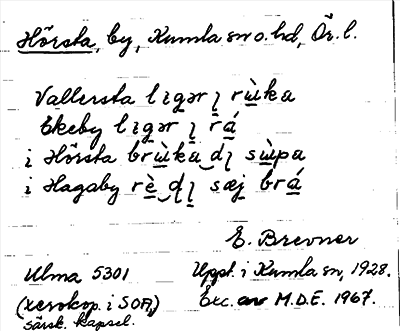 Hörsta, by, Kumla sn o. hd, Ör. l.
Vallersta lıgər ı̨ rùka
Ekeby lıgər ı̨ rá
i Hörsta brùka dı̨ sùpa
i Hagaby rè dı̨ sæj brá
E. Brevner
Ulma 5301
Uppt. i Kumla sn, 1928.
(xerokop. i SOA,)
Exc. av M.D.E. 1967.
särsk. kapsel.